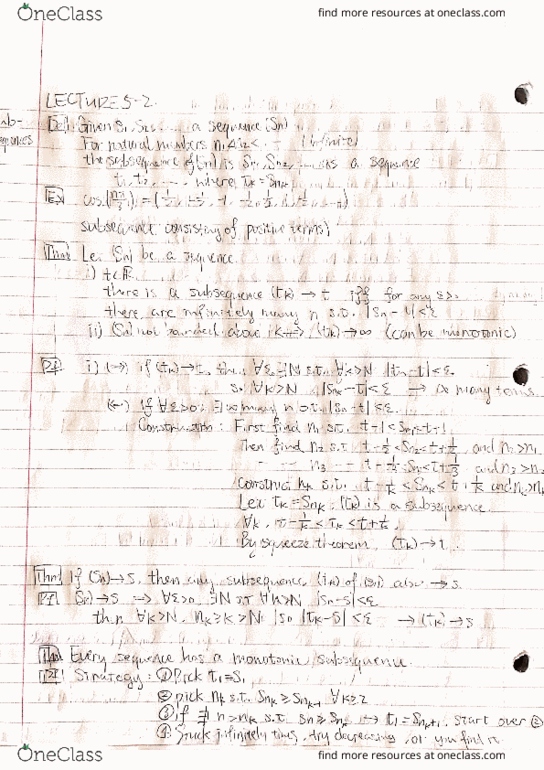 OneClass
find more resources at oneclass.com
LECTURE 5-2
Def. Given S1, S2, ... a sequence (Sn)
For natural numbers n1<n2< ... (infinite)
the subsequence of (Sn) is Sn1, Sn2, ... as a sequence
t1, t2, ... where tk = Snk
Ex
subsequence consisting of positive terms
Thm Let (Sn) be a sequence
i) t∈R
there is a subsequence (tk) → t iff for any ε>0
there are infinitely many n s.t. |Sn-t|<ε
ii) (Sn) not bounded above (tk)→∞ (can be monotonic)
Pf i) (→) if (tk)→t, then ∀ε ∃N s.t. ∀k>N |tk-t|<ε.
so ∀k>N |Snk-t|<ε → ∞ many terms
(←) If ∀ε>0, ∃ ∞ many n s.t. |Sn-t|<ε.
Construction: First find n1 s.t. t-1<Sn1<t+1
Then find n2 s.t. t-1/2<Sn2<t+1/2, and n2>n1
n3 t-1/3<Sn3<t+1/3 and n3>n2
Construct nk s.t. t-1/k<Snk<t+1/k and
Let tk=Snk, (tk) is a subsequence.
∀k, t-1/k<tk<t+1/k,
By squeeze theorem, (tk)→t.
Thm If (Sn)→S, then any subsequence (tk) of (Sn) also →S.
Pf (Sn)→S → ∀ε>0, ∃N s.t. ∀n>N |Sn-S|<ε
then ∀k>N, nk≥k>N, so |tk-S|<ε → (tk)→S
Thm Every sequence has a monotonic subsequence.
Pf Strategy: ① Pick t1=S1
② pick nk s.t. Snk ≥ Snk-1 ∀k≥2
③ if ∄ n>nk s.t. Sn≥Snk → t1=Snk+1, start over ②
④ Stuck infinitely times, try decreasing, or you find
OneClass
find more resources at oneclass.com